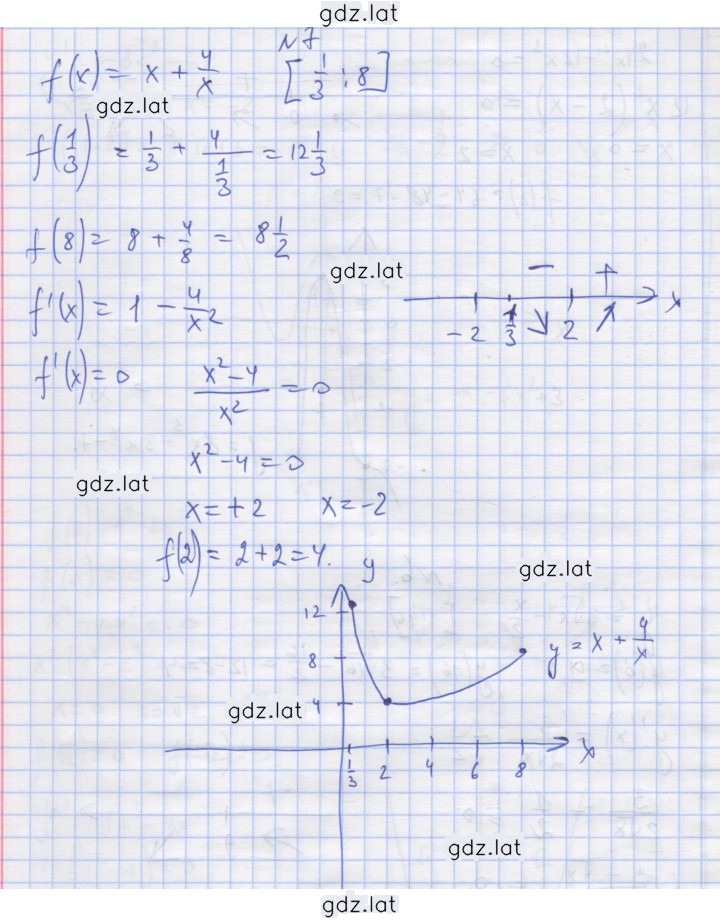 gdz.lat
N7
f(x) = x + 4/x [1/3 ; 8]
gdz.lat
f(1/3) = 1/3 + 4/(1/3) = 12 1/3
f(8) = 8 + 4/8 = 8 1/2
gdz.lat
− +
-2 1/3 ↘ 2 ↗ x
f'(x) = 1 − 4/x²
f'(x) = 0 (x² − 4)/x² = 0
x² − 4 = 0
gdz.lat
x = +2 x = −2
f(2) = 2 + 2 = 4.
y
gdz.lat
12
8
y = x + 4/x
4
gdz.lat
x
1/3 2 4 6 8
gdz.lat
gdz.lat